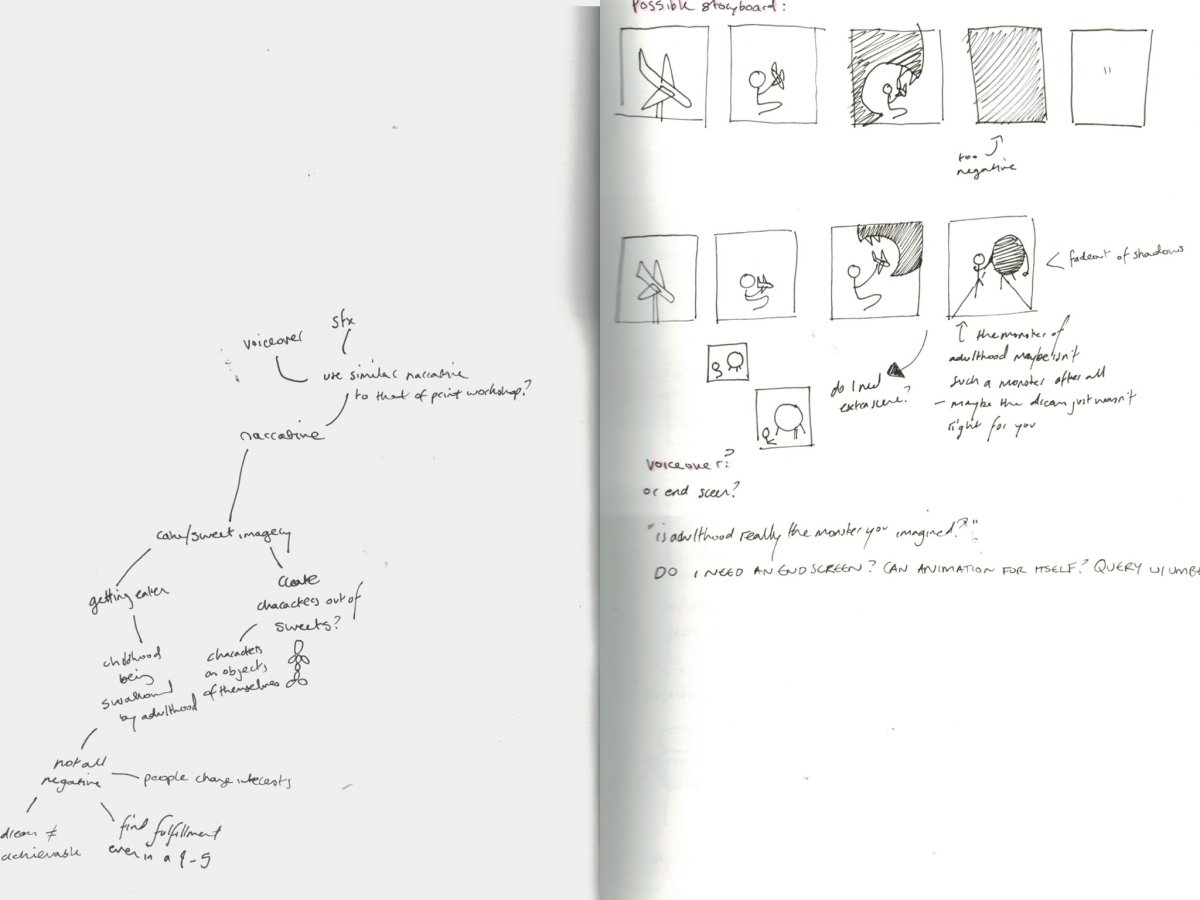 voiceover
sfx
use similar narrative
to that of print workshop?
narrative
cake/sweet imagery
getting eaten
create
characters out of
sweets?
childhood
being
swallowed
by adulthood
characters
as objects
of themselves
not all
negative
people change interests
dream ≠
achievable
find fulfillment
even in a 9-5
Possible storyboard:
"
too
negative
fadeout of shadows
the monster of
adulthood maybe isn't
such a monster after all
- maybe the dream just wasn't
right for you
do I need
extra scene?
voiceover?
or end screen?
"is adulthood really the monster you imagined?"
DO I NEED AN END SCREEN? CAN ANIMATION FOR ITSELF? QUERY W/